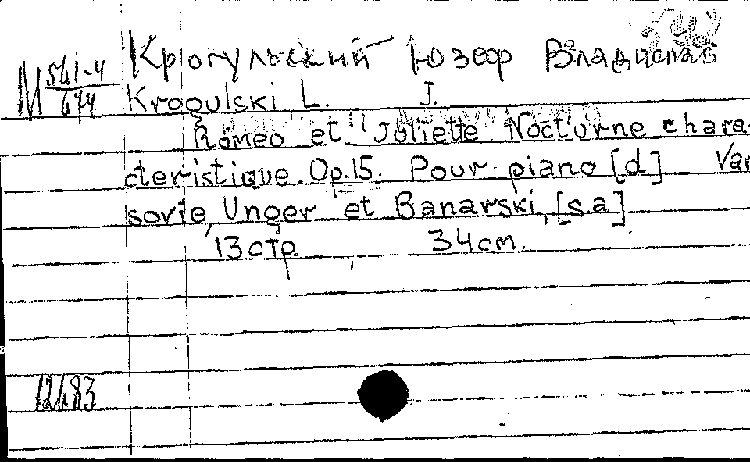 М 541-4/674
Крогульский Юзеф Владислав
Krogulski L. J.
"Romeo et Joliette" Nocturne chara-
cteristique. Op.15. Pour piano [d] Var
sovie, Unger et Banarski, [s.a]
13 стр. 34 cm.
12483